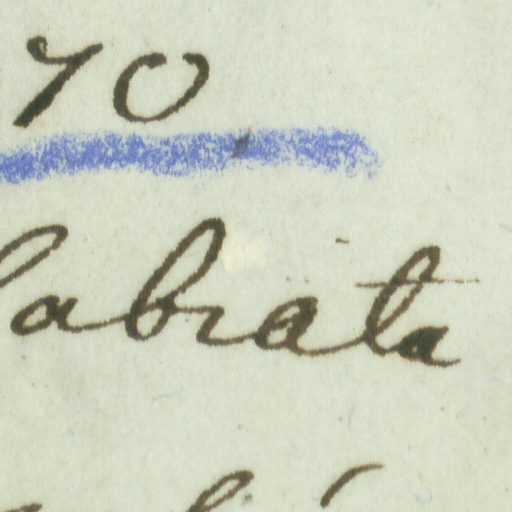 70
labiata